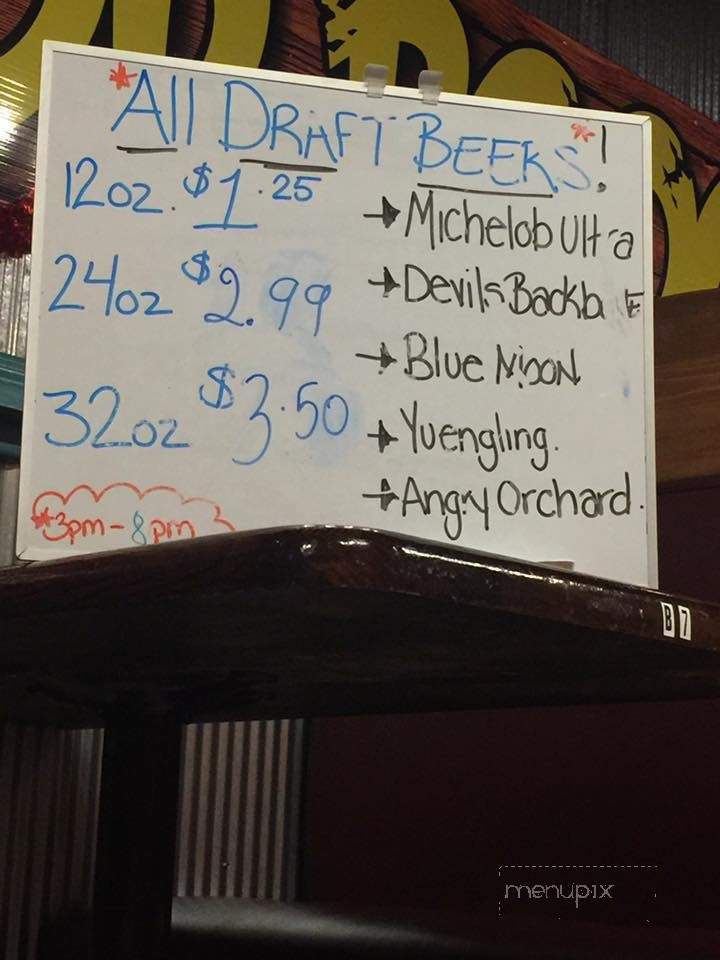 *All DRAFT BEERS*!
12oz. $1.25
24oz $2.99
32oz $3.50
*3pm - 8pm
→Michelob Ultra
→Devils Backb
→Blue Moon
→Yuengling.
→Angry Orchard.
B 7
menupix